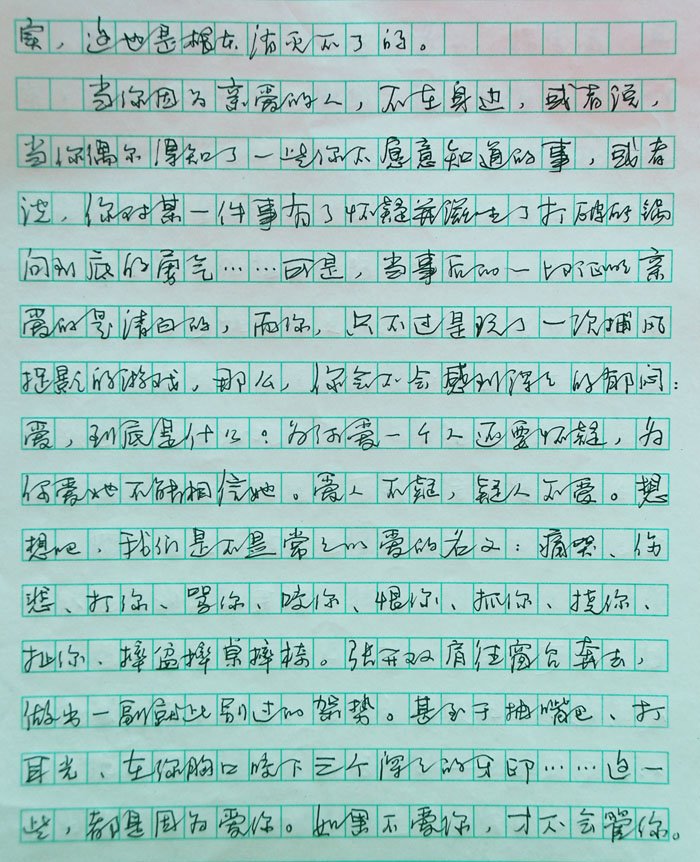 实，这也是根本消灭不了的。
当你因为亲爱的人，不在身边，或者说，
当你偶尔得知了一些你不愿意知道的事，或者
说，你对某一件事有了怀疑并滋生了打破砂锅
问到底的勇气……可是，当事后的一切证明亲
爱的是清白的，而你，只不过是玩了一次捕风
捉影的游戏，那么，你会不会感到深深的郁闷：
爱，到底是什么？为何爱一个人还要怀疑，为
何爱她不能相信她。爱人不疑，疑人不爱。想
想吧，我们是不是常常以爱的名义：痛哭、伤
悲、打你、骂你、咬你、恨你、抓你、挠你、
扯你、摔盆摔桌摔椅。张开双肩往窗台奔去，
做出一副就此别过的架势。甚至于抽嘴巴、打
耳光、在你胸口咬下三个深深的牙印……这一
些，都是因为爱你。如果不爱你，才不会管你。